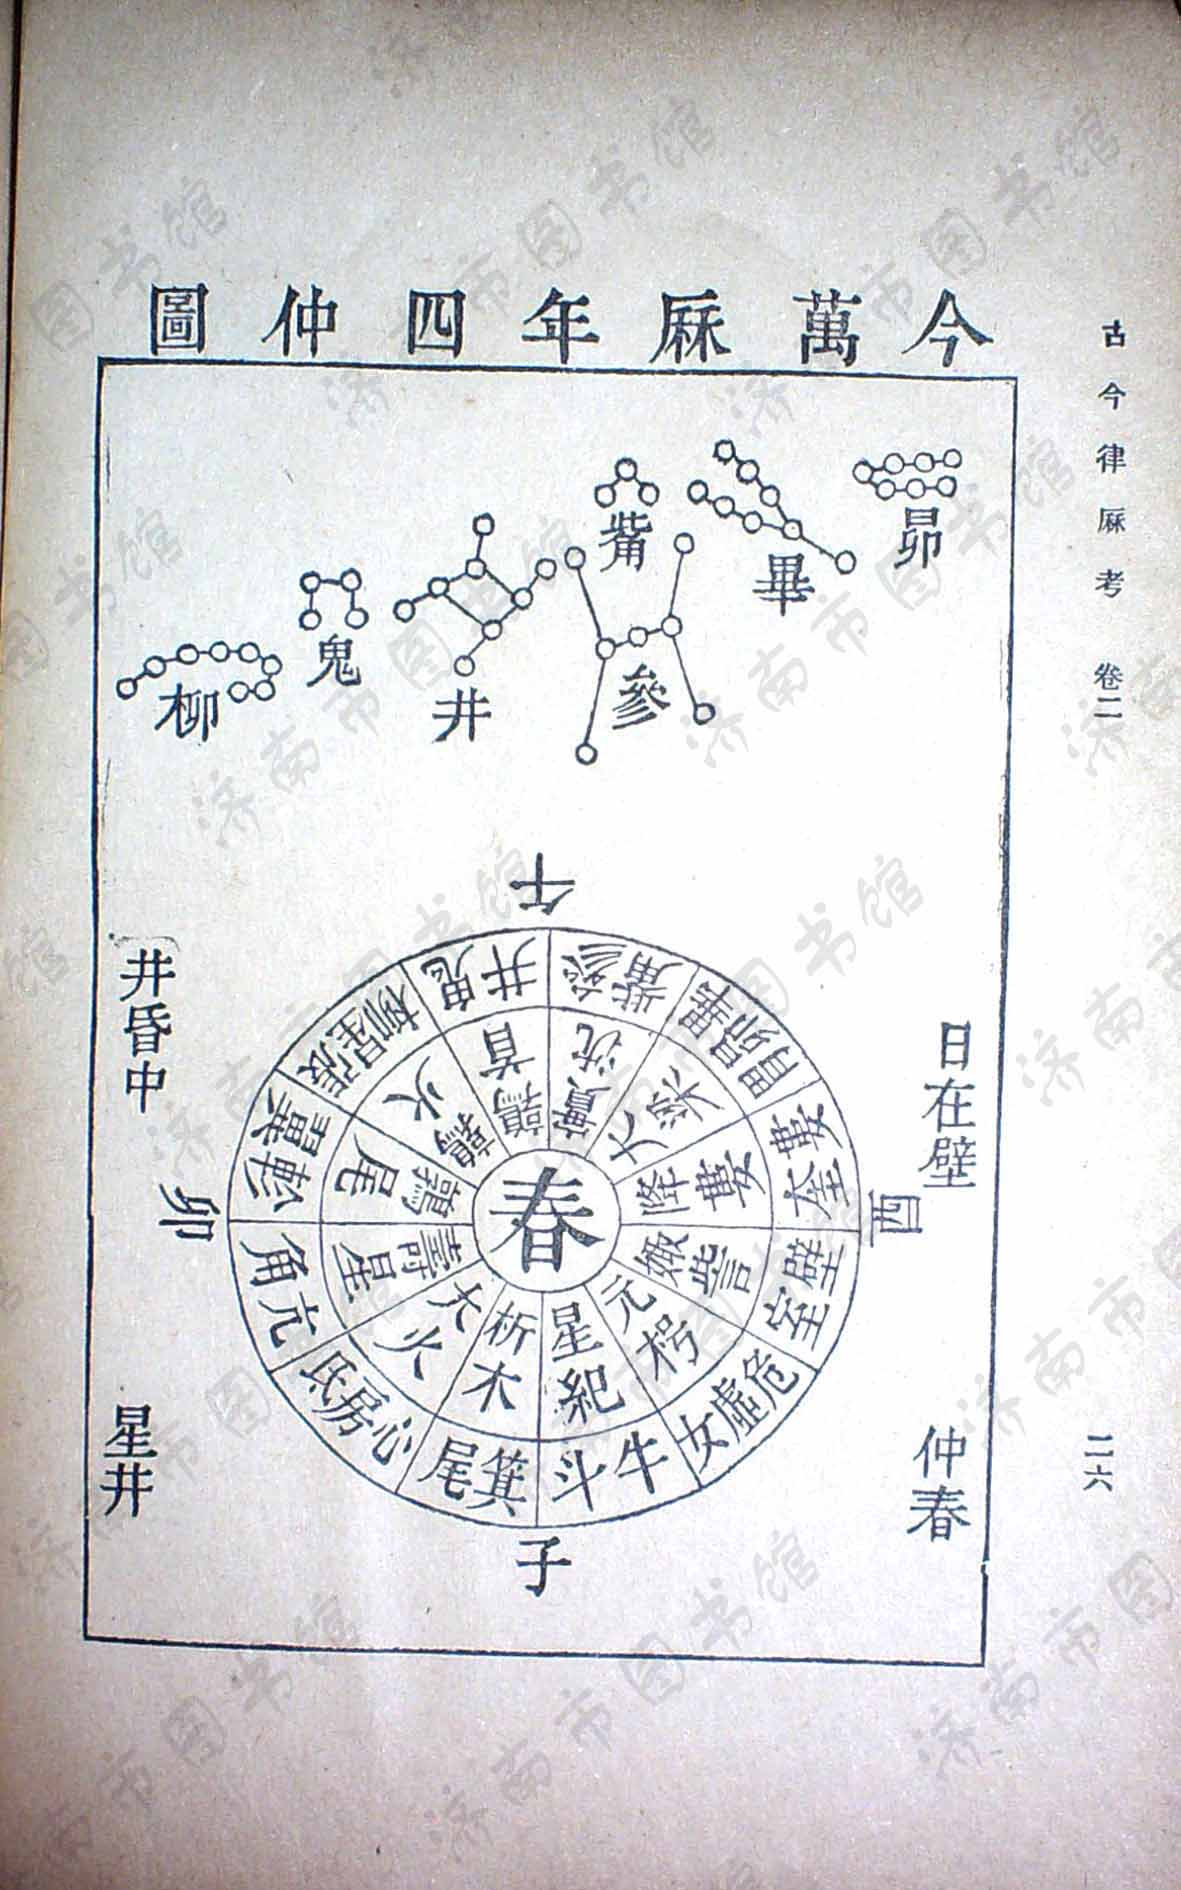 古今律厤考 卷二
二六
今萬厤年四仲圖
昴
畢
觜
參
井
鬼
柳
日在壁
仲春
井昏中
星井
午
酉
子
卯
春
井鬼
參觜
昴畢
婁
壁室
危虛女
牛斗
箕尾
心房氐
亢角
軫翼
張星柳
鶉首
實沈
大梁
降婁
娵訾
元枵
星紀
析木
大火
壽星
鶉尾
鶉火
济南市图书馆